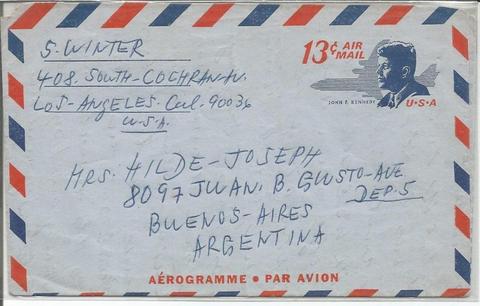 S. WINTER
408. SOUTH-COCHRAN-AV.
LOS-ANGELES. Cal. 90036
U.S.A.
13¢ AIR MAIL
JOHN F. KENNEDY
U·S·A
MRS. HILDE-JOSEPH
8097 JUAN. B. GUSTO-AVE
DEP. 5
BUENOS-AIRES
ARGENTINA
AÉROGRAMME • PAR AVION